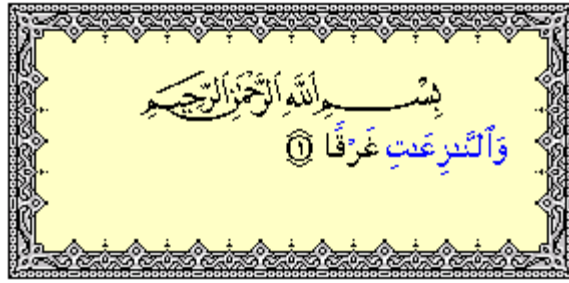 بِسْمِ ٱللَّهِ ٱلرَّحْمَٰنِ ٱلرَّحِيمِ
وَٱلنَّٰزِعَٰتِ غَرْقًا ١